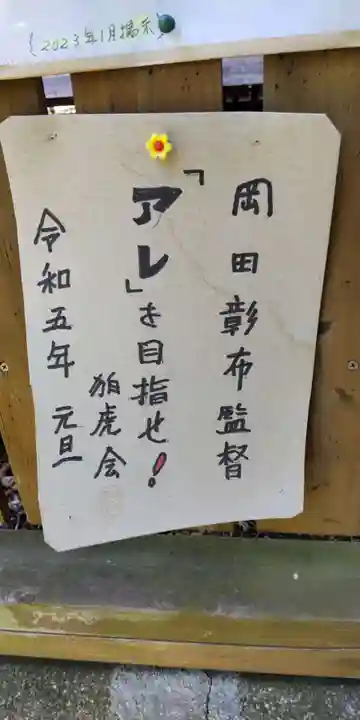 (2023年1月掲示)
岡田彰布監督
「アレ」を目指せ!
狛虎会
令和五年 元旦